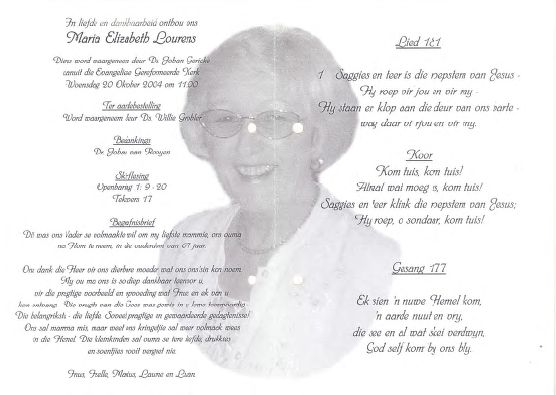 In liefde en dankbaarheid onthou ons
Maria Elizabeth Lourens
Diens word waargeneem deur Ds. Johan Gericke
vanuit die Evangeliese Gereformeerde Kerk
Woensdag 20 Oktober 2004 om 11:00
Ter aardebestelling
Word waargeneem deur Ds. Willie Grobler
Bedankings
Dr. Johan van Rooyen
Skriflesing
Openbaring 1: 9-20
Teksvers 17
Begrafnisbrief
Dit was ons Vader se volmaakte wil om my liefste mammie, ons ouma
na Hom te neem, in die ouderdom van 67 jaar.
Ons dank die Heer vir ons dierbare moeder wat ons ons s'n kon noem
My ou ma ons is so diep dankbaar teenoor u,
vir die pragtige voorbeeld en opvoeding wat Fnus en ek van u
kon ontvang. Die vrugte van die Gees was
Die belangrikste - die liefde. Soveel pragtige en gewaardeerde gedagtenisse!
Ons sal mamma mis, maar weet ons kringetjie sal weer volmaak wees
in die Hemel. Die kleinkinders sal ouma se tere liefde, drukkies
en soentjies nooit vergeet nie.
Lourie en Loan
Lied 181
1 Saggies en teer is die roepstem van Jesus -
Hy roep vir jou en vir my -
Hy staan en klop aan die deur van ons harte -
wag daar vir jou en vir my.
Koor
Kom tuis, kom tuis!
Almal wat moeg is, kom tuis!
Saggies en teer klink die roepstem van Jesus;
Hy roep, o sondaar, kom tuis!
Gesang 177
Ek sien 'n nuwe Hemel kom,
'n aarde nuut en vry,
die see en al wat skei verdwyn,
God self kom by ons bly.